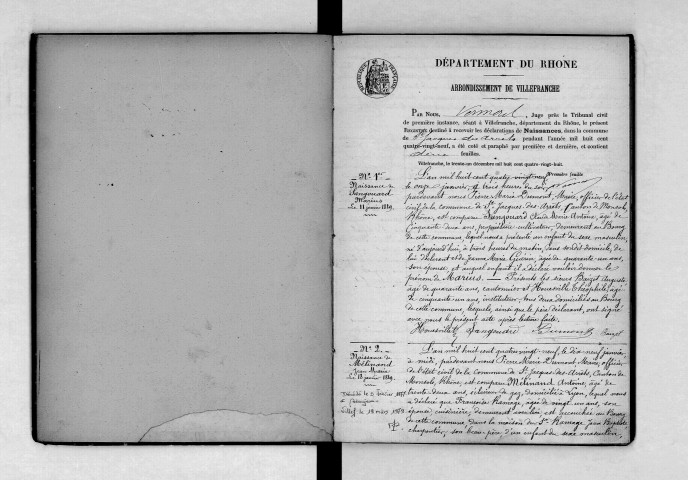 DÉPARTEMENT DU RHÔNE
ARRONDISSEMENT DE VILLEFRANCHE
PAR NOUS, Juge près le Tribunal civil
de première instance, séant à Villefranche, département du Rhône, le présent
Registre destiné à recevoir les déclarations de Naissances, dans la commune
de St Jacques des Arrêts pendant l'année mil huit cent
quatre-vingt-neuf, a été coté et paraphé par première et dernière, et contient
feuilles.
Villefranche, le trente-un décembre mil huit cent quatre-vingt-huit.
Première feuille
N° 1er
Naissance de
Sangouard
Marius
Le 11 janvier 1889
L'an mil huit cent quatre vingt neuf
le onze janvier, à trois heures du soir,
pardevant nous Pierre Marie Dumont, Maire, officier de l'état
civil de la commune de St Jacques-des-Arrêts, Canton de Monsols,
Rhône, est comparu Sangouard Claude Marie Antoine, âgé de
cinquante deux ans, propriétaire cultivateur, demeurant au Bourg
de cette commune, lequel nous a présenté un enfant du sexe masculin,
né d'aujourd'hui, à trois heures du matin, dans son dit domicile, de
lui déclarant et de Jeanne Marie Guérin, âgée de quarante-un ans,
son épouse, et auquel enfant il a déclaré vouloir donner le
prénom de Marius. — Présents les sieurs Auguste
âgé de quarante ans, cantonnier et Théophile, âgé
de cinquante-un ans, instituteur, tous deux domiciliés au Bourg
de cette commune, lesquels, ainsi que le père déclarant, ont signé
avec nous le présent acte après lecture faite.
Dumont
N° 2.
Naissance de
Mélinand
Jean Marie
Le 18 janvier 1889.
L'an mil huit cent quatre-vingt-neuf, le dix-neuf janvier,
à midi, pardevant nous Pierre Marie Dumont, Maire,
de l'état civil de la Commune de St Jacques-des-Arrêts, Canton de
Monsols, Rhône, est comparu Mélinand Antoine, âgé de
trente-deux ans, de gaz, domicilié à Lyon, lequel nous
a déclaré que Françoise Ramage, âgée de vingt un ans, son
épouse, cuisinière, demeurant avec lui, est accouchée au Bourg
de cette commune, dans la maison du Sr Ramage Jean
charpentier, son beau-père, d'un enfant du sexe masculin,
18 mars 1959